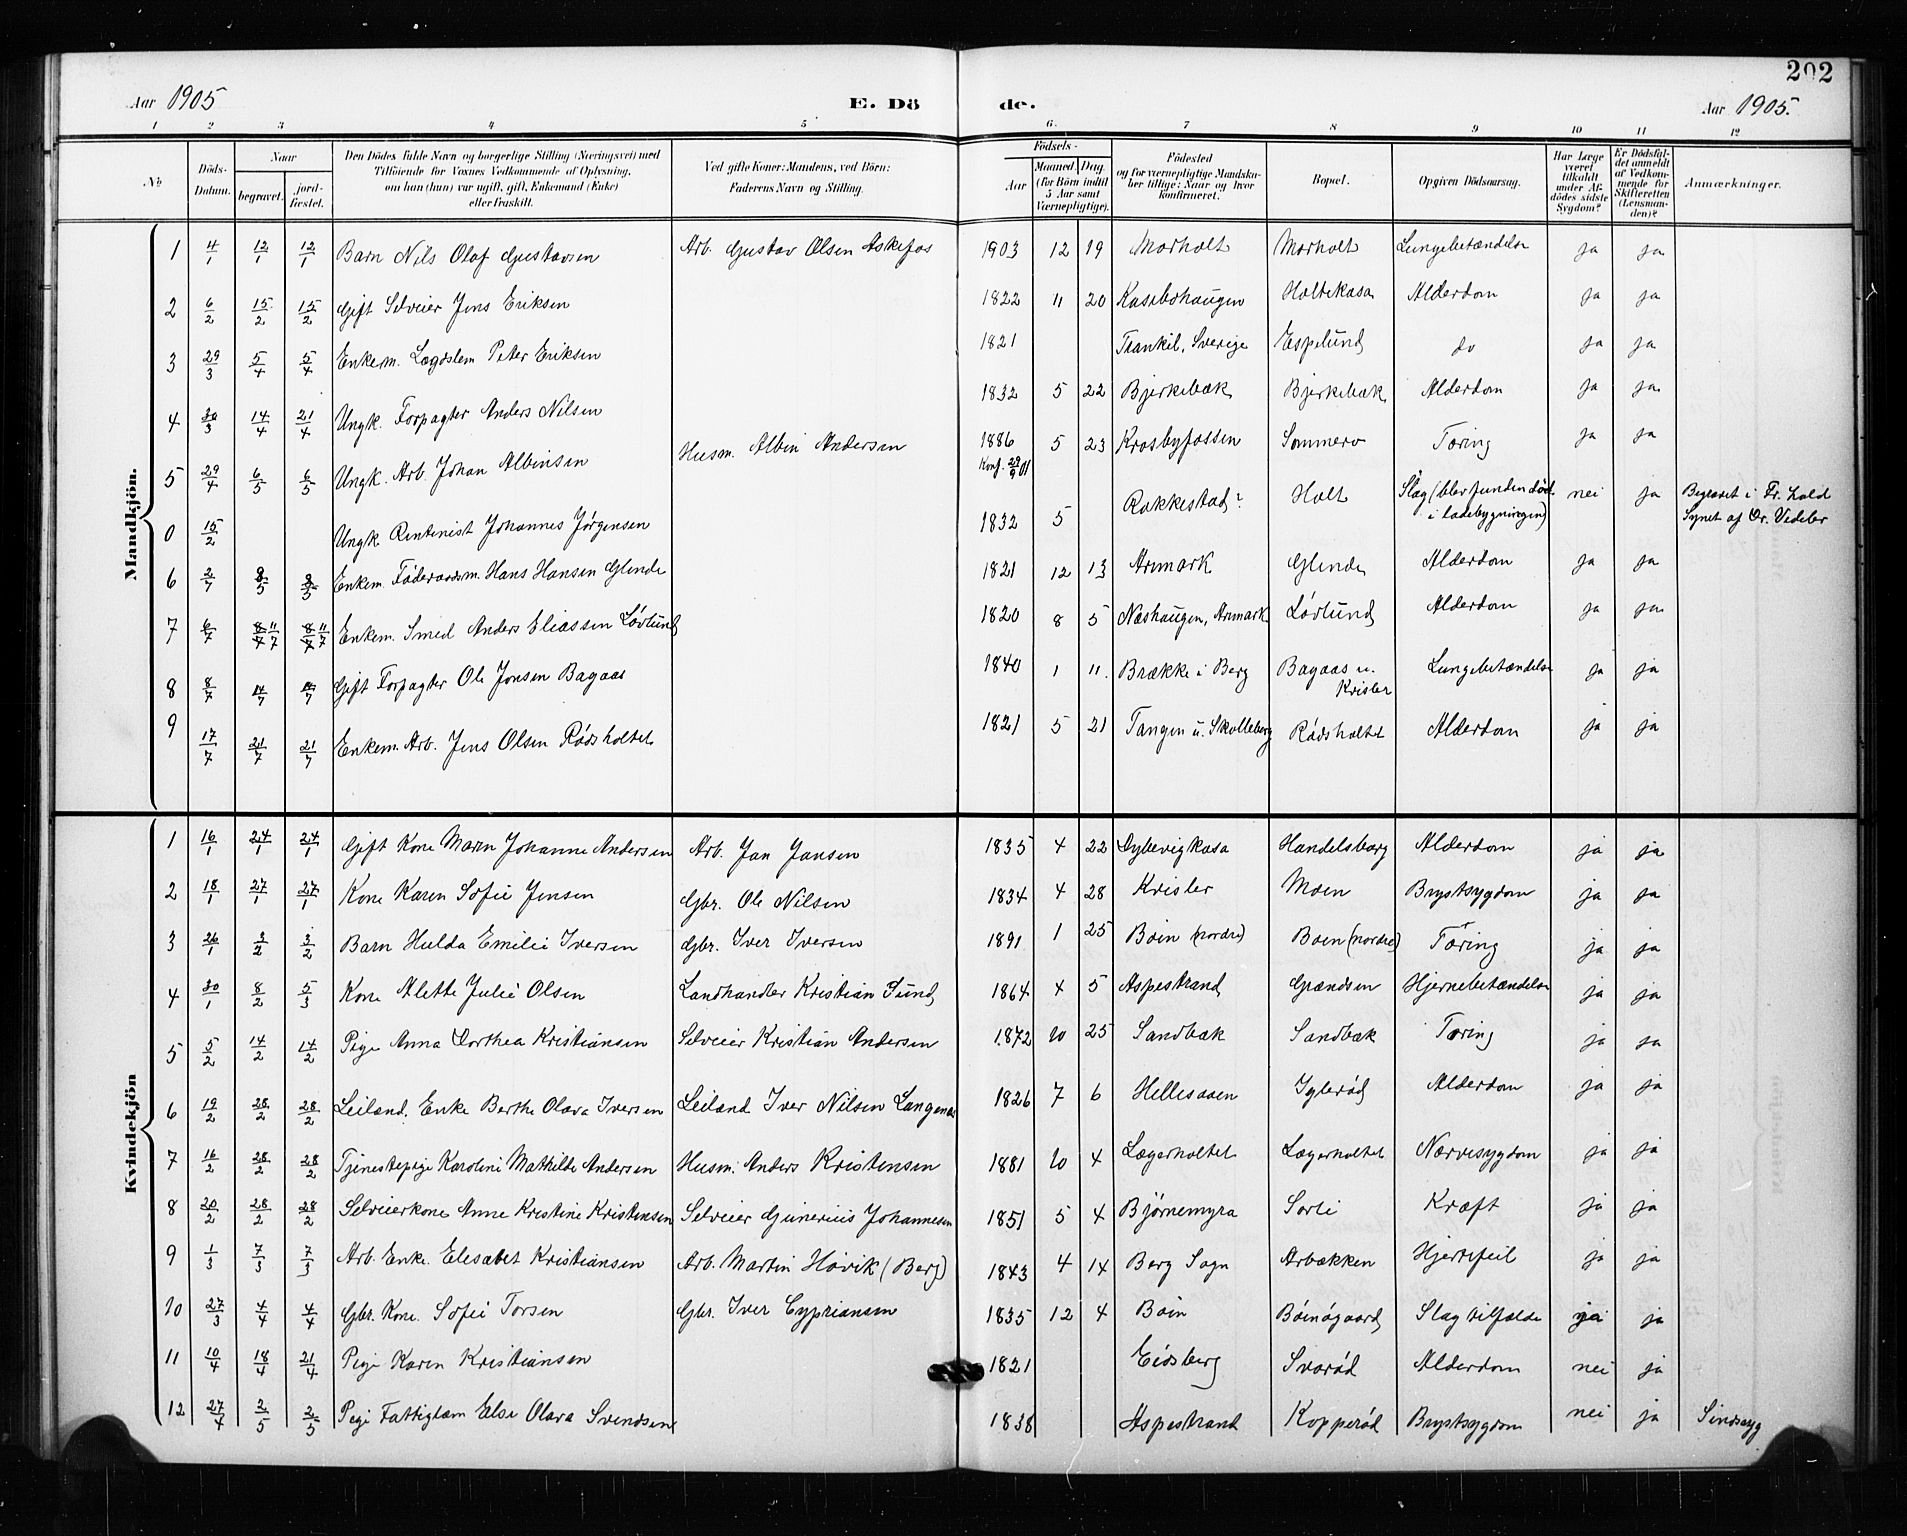 202
Aar 1905 E. Dö de. Aar 1905.
1 2 3 4 5 6 7 8 9 10 11 12
No
Döds-Datum.
Naar
begravet.
jord-fæstet.
Den Dödes fulde Navn og borgerlige Stilling (Næringsvei) med
Tilföiende for Voxnes Vedkommende af Oplysning,
om hun (hun) var ugift, gift, Enkemand (Enke)
eller fraskilt.
Ved gifte Koner: Mandens, ved Börn:
Faderens Navn og Stilling.
Födsels-
Aar
Maaned Dag.
(for Börn indtil
5 Aar samt
Værnepligtige).
Födested
og for værnepligtige Mandsku-
ber tillige: Naar og hvor
konfirmeret.
Bopæl.
Opgiven Dödsaarsag.
Har Læge
været
tilkaldt
under Af-
dödes sidste
Sygdom?
Er Dödsfal-
det anmeldt
af Vedkom-
mende for
Skifteretten
(Lensman-
den)?
Anmærkninger.
Mandkjön.
1 11/1 12/1 12/1 Barn Nils Olaf Gustavsen Arb. Gustav Olsen Askefos 1903 12 19 Morholt Morholt Lungebetændelse ja ja
2 6/2 15/2 15/2 Gift Selveier Jens Eriksen 1822 11 20 Kasebohaugen Holtekasa Alderdom ja ja
3 29/3 5/4 5/4 Enkem. Lægdslem Peter Eriksen 1821 Trankil, Sverige Espelund do ja ja
4 30/3 14/4 21/4 Ungk. Forpagter Anders Nilsen 1832 5 22 Bjerkebæk Bjerkebæk Alderdom ja ja
5 29/4 6/5 6/5 Ungk. Arb. Johan Albinsen Husm. Albin Andersen 1886 5 23 Krosbyfossen Sommero Tæring ja ja
Konf. 29/9 01
0 15/2 Ungk. Rentenist Johannes Jørgensen 1832 5 Rakkestad? Holt Slag (blev funden död i ladebygningen) nei ja Begravet i Fr. hald Synet af Dr. Vedeler
6 2/7 8/5 8/5 Enkem. Föderaadsm. Hans Hansen Glende 1821 12 13 Aremark Glende Alderdom ja ja
7 6/7 8/7 11/7 8/7 11/7 Enkem. Smed Anders Eliassen Løvlund 1820 8 5 Næshaugen, Aremark Løvlund Alderdom ja ja
8 8/7 14/7 14/7 Gift Forpagter Ole Jonsen Bagaas 1840 1 11. Brække i Berg Bagaas u. Krisler Lungebetændelse ja ja
9 17/7 21/7 21/7 Enkem. Arb. Jens Olsen Rødsholtet 1821 5 21 Tangen u. Skolleborg Rødsholtet Alderdom ja ja
Kvindekjön
1 16/1 24/1 24/1 Gift Kone Maren Johanne Andersen Arb. Jan Jansen 1835 4 22 Dybevigkasa Handelsborg Alderdom ja ja
2 18/1 27/1 27/1 Kone Karen Sofie Jensen Gbr. Ole Nilsen 1834 4 28 Krisler Moen Brystsygdom ja ja
3 26/1 3/2 3/2 Barn Hulda Emilie Iversen Gbr. Iver Iversen 1891 1 25 Böen (nordre) Böen (nordre) Tæring ja ja
4 30/1 8/2 5/3 Kone Alette Julie Olsen Landhandler Kristian Sund 1864 4 5 Aspestrand Grændsen Hjernebetændelse ja ja
5 5/2 14/2 14/2 Pige Anna Dorthea Kristiansen Selveier Kristian Andersen 1872 10 25 Sandbæk Sandbæk Tæring ja ja
6 19/2 28/2 28/2 Leiland. Enke Berthe Olava Iversen Leiland Iver Nilsen Langenæs 1826 7 6 Hellesaaen Iglerød Alderdom ja ja
7 16/2 28/2 28/2 Tjenestepige Karoline Mathilde Andersen Husm. Anders Kristensen 1881 10 4 Lægerholtet Lægerholtet Nervesygdom ja ja
8 20/2 28/2 28/2 Selveierkone Anne Kristine Kristensen Selveier Gunerius Johannesen 1851 5 4 Bjørnemyra Sorli Kræft ja ja
9 1/3 7/3 7/3 Arb. Enke. Elisabet Kristiansen Arb. Martin Høvik (Berg) 1843 4 14 Berg Sogn Arbækken Hjertefeil ja ja
10 27/3 4/4 4/4 Gbr. Kone. Sofie Torsen Gbr. Iver Cyprianson 1835 12 4 Böen Böensgaard Slagtilfælde ja
11 10/4 18/4 21/4 Pige Karen Kristiansen 1821 Eidsberg Svarød Alderdom nei ja
12 27/4 2/5 2/5 Pige Fattiglem Else Olava Svendsen 1838 Aspestrand Kopperød Brystsygdom nei ja Sindssyg